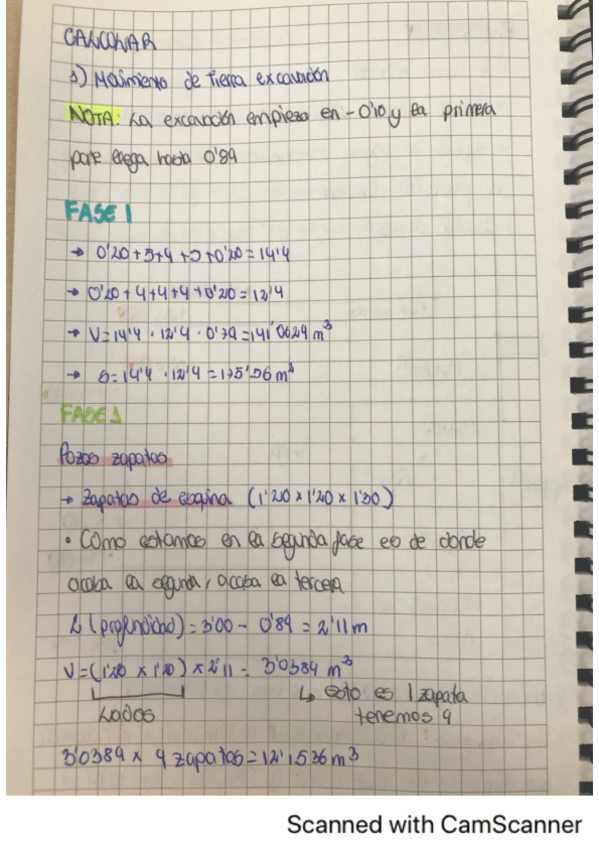 CALCULAR
1) Movimiento de tierra excavación
NOTA: La excavación empieza en -0'10 y la primera
parte llega hasta 0'89
FASE 1
→ 0'20+5+4+5+0'20=14'4
→ 0'20+4+4+4+0'20=12'4
→ V=14'4 · 12'4 · 0'79=141'0624 m³
→ S=14'4 · 12'4=178'56 m²
FASE
Pozos zapatas
→ Zapatas de esquina (1'20x1'20x1'30)
• Como estamos en la segunda fase es de donde
acaba la segunda, acaba la tercera
L (profundidad)=3'00-0'89=2'11m
V=(1'20 x 1'20) x 2'11= 3'0384 m³
↳ esto es 1 zapata
Lados
tenemos 4
3'0384 x 4 zapatas=12'1536 m³
Scanned with CamScanner